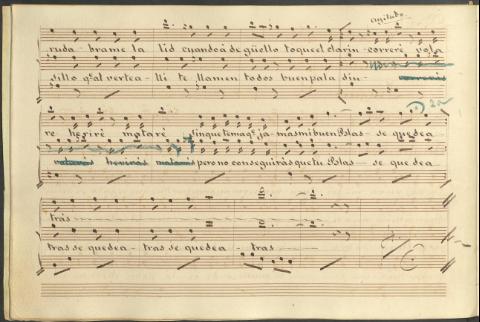 agitado
ruda - brame la lid cuando á de güello toque el clarin correré vola
sillo q.e al verte a - lli te llamen todos buen pala din -
re heriré mataré sin que tema q.e ja - mas mi buen Blas - se quede a
matarás herirás matarás pero no conseguirás que tu Blas - se que de a
trás
tras se que de a - tras se que de a - tras